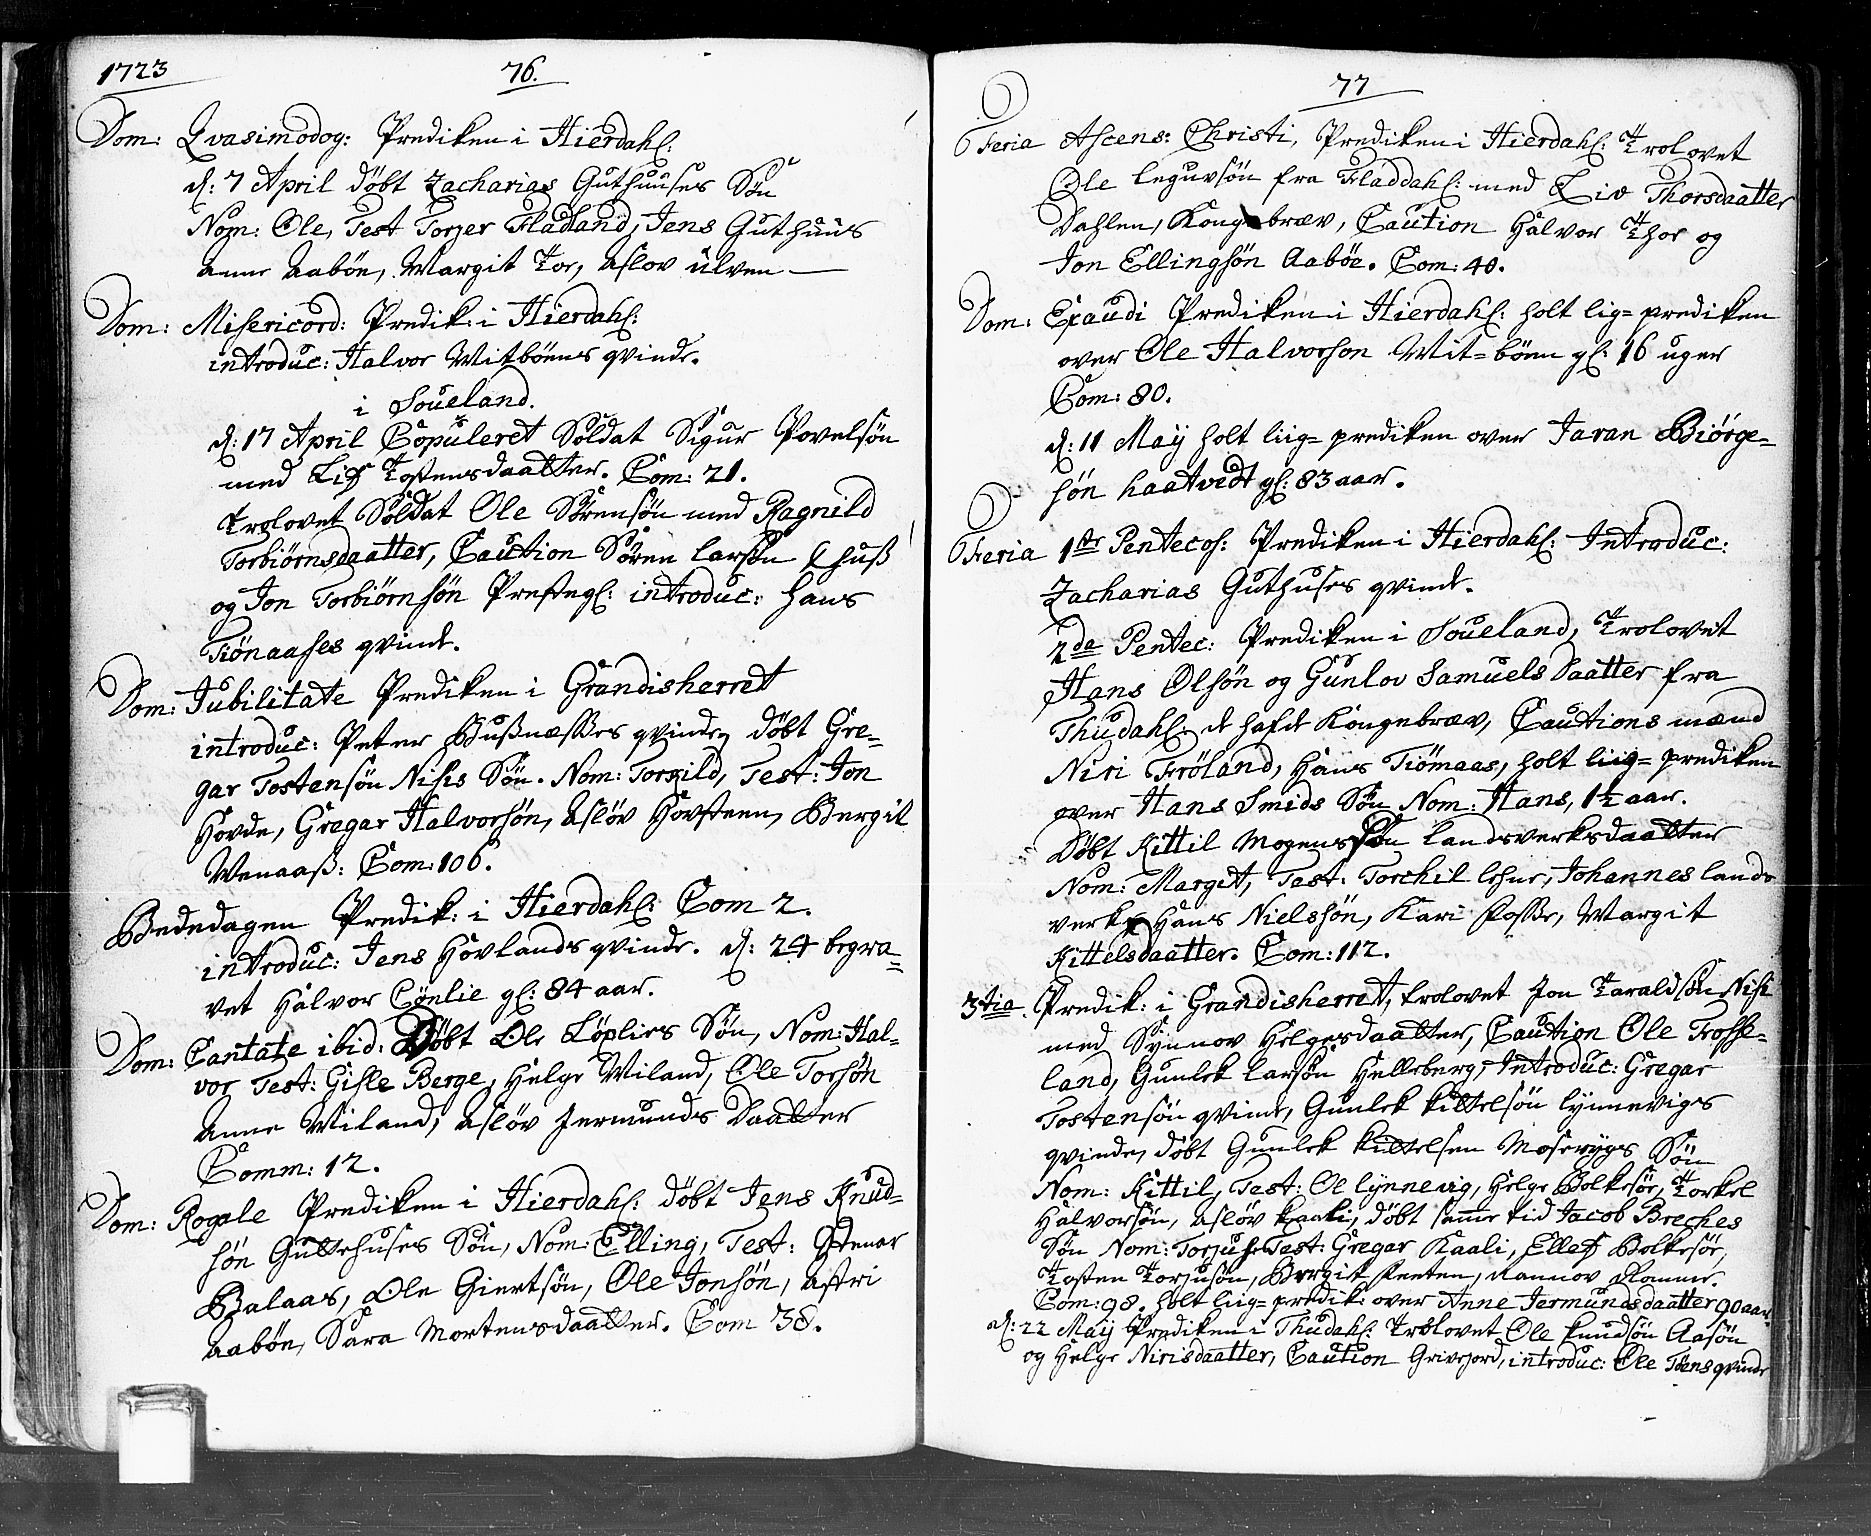 1723
76.
Dom: Qvasimodog: Prediken i Hierdahl:
d: 7 April döbt Zacharias Guthuuses Sön
Nom: Ole, Test Torger Fladland, Jens Guthuus
Anne Aaböe, Margit Tor, Aslov Ulven
Dom: Misericord: Predik: i Hierdahl:
introduc: Halvor Mitböens qvinde.
i Soueland.
d: 17 April Copuleret Soldat Sigur Povelsön
med Lif Tostensdaatter. Com: 21.
Trolovet Soldat Ole Sörensön med Ragnild
Torbiörnsdaatter, Caution Sören Larssön
og Jon Torbiörnsön Prestegl: introduc: Hans
Tiönaases qvinde.
Dom: Jubilitate Prediken i Grandisherret
introduc: Peter Bussnæsses qvinde, döbt Gre-
gar Tostensön Nisis Sön. Nom: Torgild, Test: Jon
Hovde, Gregar Halvorsön, Aslöv Hovsteen, Bergit
Wenaass: Com: 106.
Bededagen Predik: i Hierdahl: Com 2.
introduc: Jens Hovlands qvinde. d: 24 begra-
vet Halvor Cönlie gl: 84 aar.
Dom: Cantate ibid: Döbt Ole Löplies Sön, Nom: Hal-
vor Test: Gisle Berge, Helge Miland, Ole Torsön
Anne Miland, Aslöv Jermunds Daatter
Comm: 12.
Dom: Rogate Prediken i Hierdahl: döbt Jens Knud-
sön Guttehuses Sön, Nom: Elling, Test: Gtenar
Balaas, Ole Giertsön, Ole Jonsön, Astri
Aaböe, Sara Mortensdaatter. Com 38.
77
Feria Ascens: Christi, Prediken i Hierdahl: Trolovet
Ole Leguvsön fra Fladdahl: med Liv Thorsdaatter
Dahlen, Kongebræv, Caution Halvor Thor og
Jon Ellingsön Aaböe. Com: 40.
Dom: Exaudi Prediken i Hierdahl: holt lig-prediken
over Ole Halvorson Mit-böen gl: 16 uger
Com: 80.
d: 11 May holt liig-prediken over Taran Biörge-
sön Haatvedt gl: 83 aar.
Feria 1ste Pentecos: Prediken i Hierdahl: Introduc:
Zacharias Guthuses qvinde.
2da Pentec: Prediken i Soueland, Trolovet
Hans Olsön og Gunlov Samuels Daatter fra
Thudahl: de hafde Kongebræv, Cautions mænd
Niri Fröland, Hans Tiömaas, holt liig-prediken
over Hans Smids Sön Nom: Hans, 1½ aar.
Döbt Kittil Mogensön Landsverksdaatter
Nom: Marget, Test: Torchil Lofhue, Johannes Lands
verk, Hans Nielssön, Kari Fosse, Margit
Kittelsdaatter. Com: 112.
3tia. Predik: i Grandisherret, trolovet Jon Taraldsön Nisi
med Synnov Helgesdaatter, Caution Ole Trosse-
land, Gunlek Larsön Helleberg, Introduc: Gregar
Tostensön qvinde, Gunlek Kittelsön Lynneviges
qvinde, döbt Gunlek Kittelsen Moserygs Sön
Nom: Kittil, Test: Ol Lynnevig, Helge Bolkesöe, Torkel
Halvorsön, Aslöv Kaali, döbt samme tid Jacob Breches
Sön Nom: Torjus Test: Gregar Kaali, Ellef Bolkesöe,
Tosten Torjusön, Bergit Feeten, Rannov Romme.
Com: 98. holt liig-predik: over Anne Jermundsdaatter 90 aar.
d: 22 May Prediken i Thudahl: Trolovet Ole Knudsön Aasön
og Helge Nirisdaatter, Caution Grivejord, introduc: Ole Töens qvinde